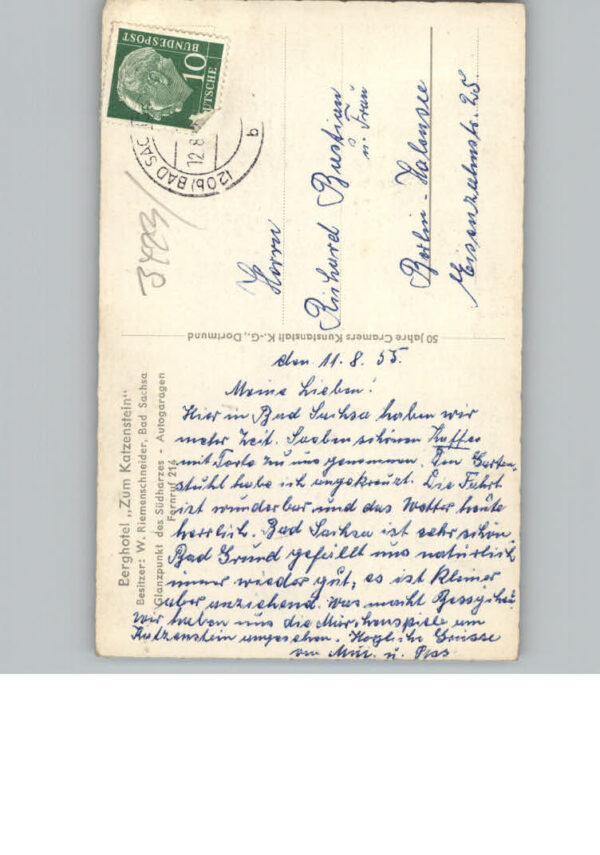 Berghotel „Zum Katzenstein"
Besitzer: W. Riemenschneider, Bad Sachsa
Glanzpunkt des Südharzes - Autogaragen
Fernruf 214
50 Jahre Cramers Kunstanstalt K.-G., Dortmund
DEUTSCHE
BUNDESPOST
10
(20b) BAD SAC
12.8
b
Herrn
Richard Bastian
u. Frau
Berlin - Halensee
Eisenzahnstr. 25.
den 11. 8. 55.
Meine Lieben!
Hier in Bad Sachsa haben wir
mehr Zeit. Soeben schönen Kaffee
mit Torte zu uns genommen. Den Garten-
stuhl habe ich angekreuzt. Die Fahrt
ist wunderbar und das Wetter heute
herrlich. Bad Sachsa ist sehr schön.
Bad Grund gefällt uns natürlich
immer wieder gut, es ist kleiner
aber anziehend. Was macht
Wir haben uns die Märchenspiele am
Katzenstein angesehen. Herzliche Grüsse
von u.